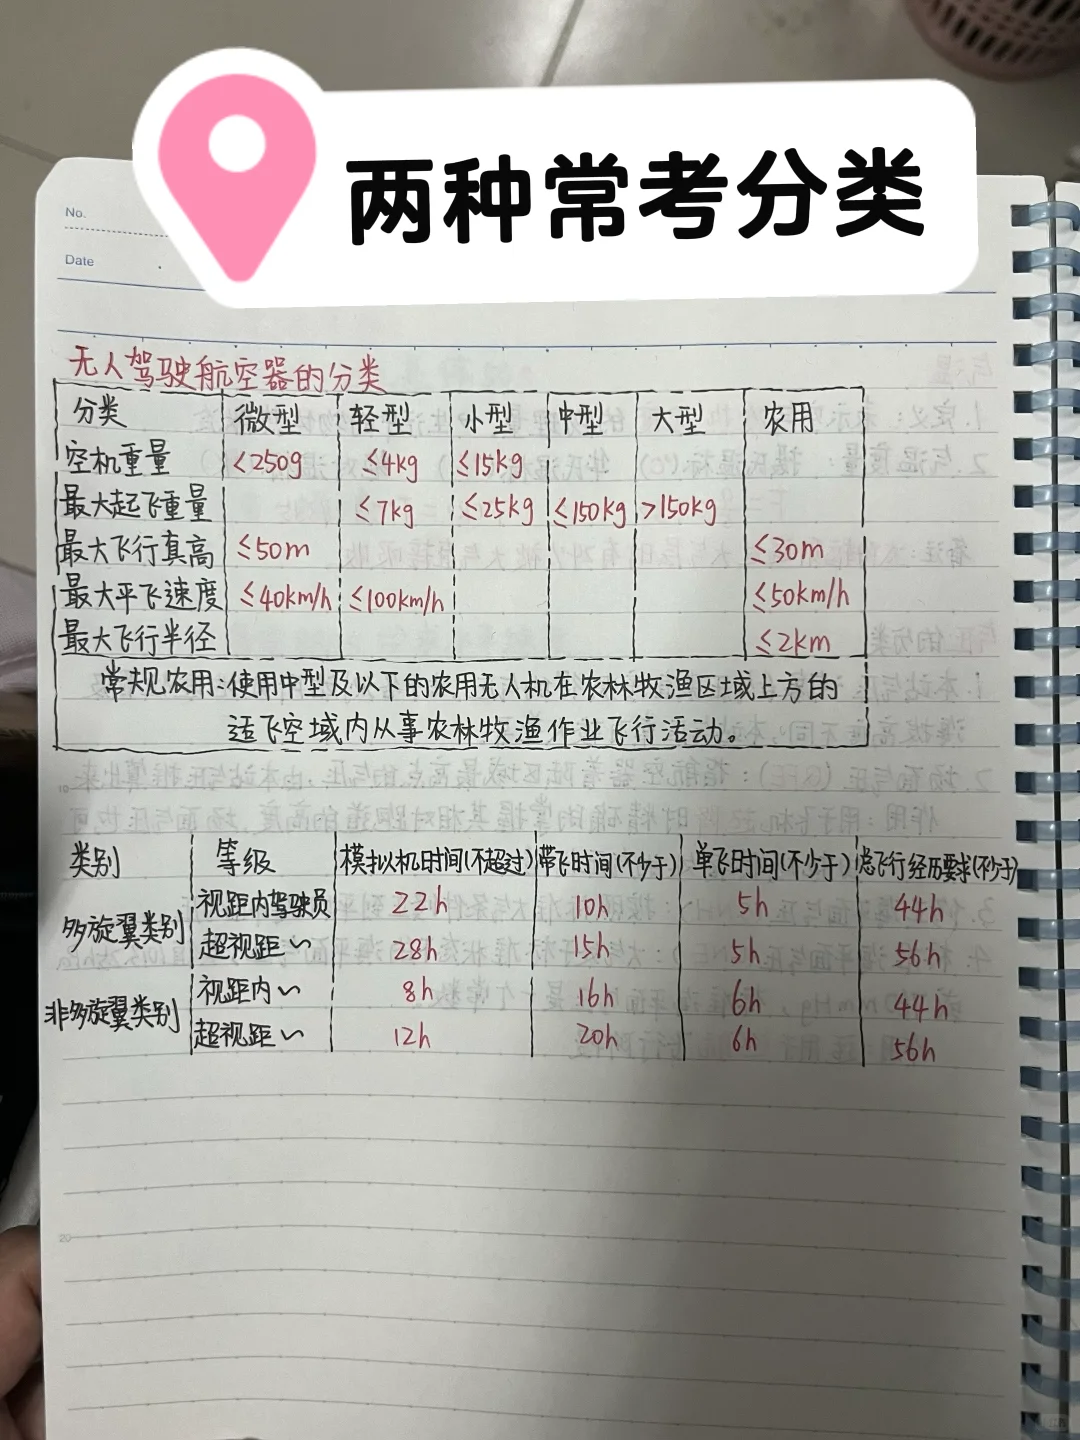 两种常考分类
No.
Date
无人驾驶航空器的分类
分类 微型 轻型 小型 中型 大型 农用
空机重量 <250g ≤4kg ≤15kg
最大起飞重量 ≤7kg ≤25kg ≤150kg >150kg
最大飞行真高 ≤50m ≤30m
最大平飞速度 ≤40km/h ≤100km/h ≤50km/h
最大飞行半径 ≤2km
常规农用:使用中型及以下的农用无人机在农林牧渔区域上方的
适飞空域内从事农林牧渔作业飞行活动。
10
类别 等级 模拟机时间(不超过) 带飞时间(不少于) 单飞时间(不少于) 总飞行经历要求(不少于)
多旋翼类别 视距内驾驶员 22h 10h 5h 44h
超视距〜 28h 15h 5h 56h
非多旋翼类别 视距内〜 8h 16h 6h 44h
超视距〜 12h 20h 6h 56h
20